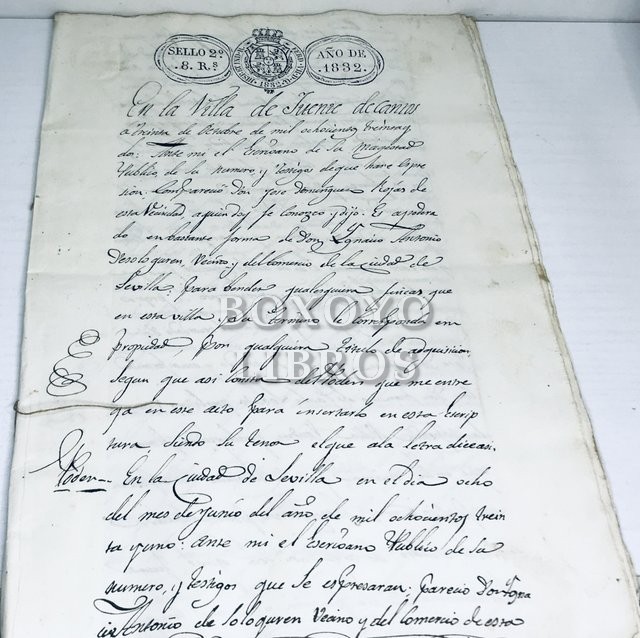 SELLO 2º
8. Rs
AÑO DE
1832.
En la Villa de Fuente de Cantos
a treinta de Octubre de mil ochocientos treinta y
dos: Ante mi el Escribano de Su Magestad
Publico, de su numero, y testigos de que hare espre
sion: Comparecio Don Jose Dominguez Rojas de
esta Vecindad, a quien doy fe conozco, y dijo: Es apodera
do en bastante forma de Don Ygnacio Antonio
de Sologuren, Vecino y del Comercio de la Ciudad de
Sevilla, para bender qualesquiera fincas que
en esta villa y su termino le correspondan en
propiedad, por qualquiera titulo de adquisicion,
segun que asi consta del Poder que me entre
ga en este acto para insertarlo en esta Escrip
tura, siendo su tenor el que a la letra dice asi.
Poder
En la Ciudad de Sevilla en el dia ocho
del mes de Junio del año de mil ochocientos trein
ta y uno: ante mi el Escribano Publico de su
numero, y testigos que se espresaran; parecio Don Ygna
cio Antonio de Sologuren Vecino y del Comercio de esta
BOXOYO
LIBROS